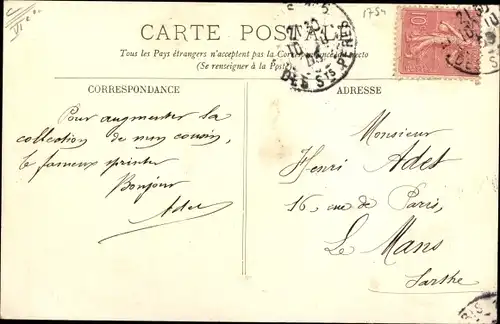 VIe
1754
CARTE POSTALE
Tous les Pays étrangers n'acceptent pas la Correspondance au recto
(Se renseigner à la Poste)
21 30
10
DES Sts PERES
CORRESPONDANCE
ADRESSE
Pour augmenter la
collection de mon cousin,
le fameux sprinter
Bonjour
Adet
Monsieur
Henri Adet
16, rue de Paris,
Le Mans
Sarthe